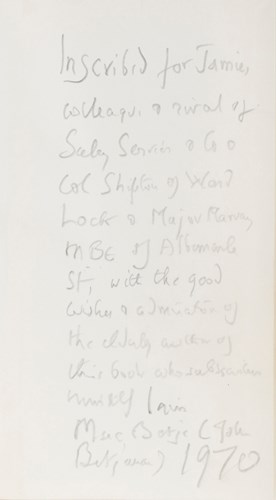 Inscribed for Jamie,
colleague & rival of
Seeley Service & Co &
Col Shipton of Ward
Lock & Major Murray
MBE of Albemarle
St, with the good
wishes & admiration of
the elderly author of
this book who subscribes
himself Iain
Mac Betje (John
Betjeman) 1970